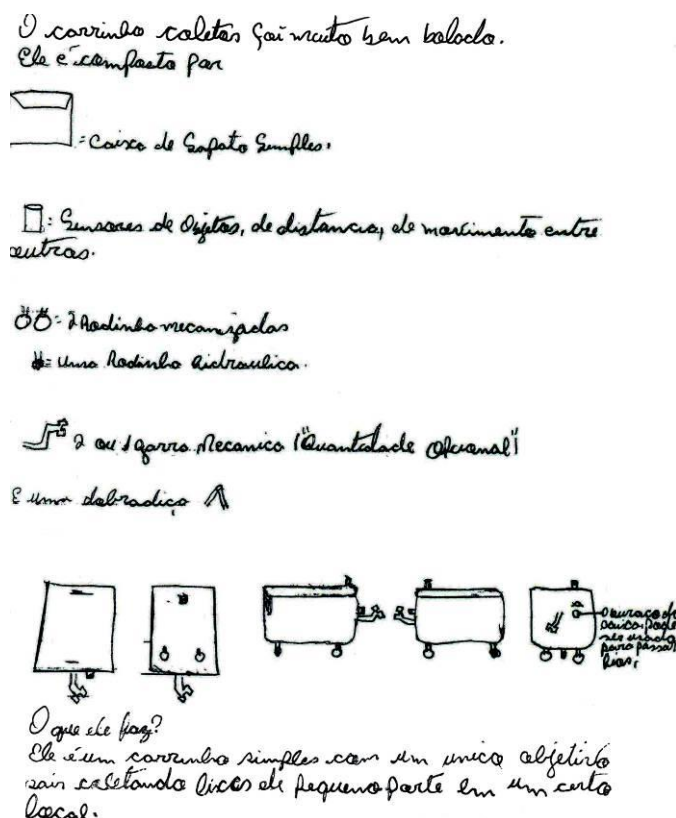 O carrinho coletas foi muito bem bolado.
Ele é composto por
= Caixa de Sapato Simples.
: Sensores de Objetos, de distancia, de movimento entre
outras.
= 2 Rodinha mecanizadas
= Uma Rodinha hidraulica.
2 ou 1 garra Mecanica ("Quantidade Opcional")
E uma dobradiça
O buraco da
caixa pode
ser usada
para passar
fias.
O que ele faz?
Ele é um carrinho simples com um unico objetivo
sair coletando lixos de pequeno parte em um certo
local.